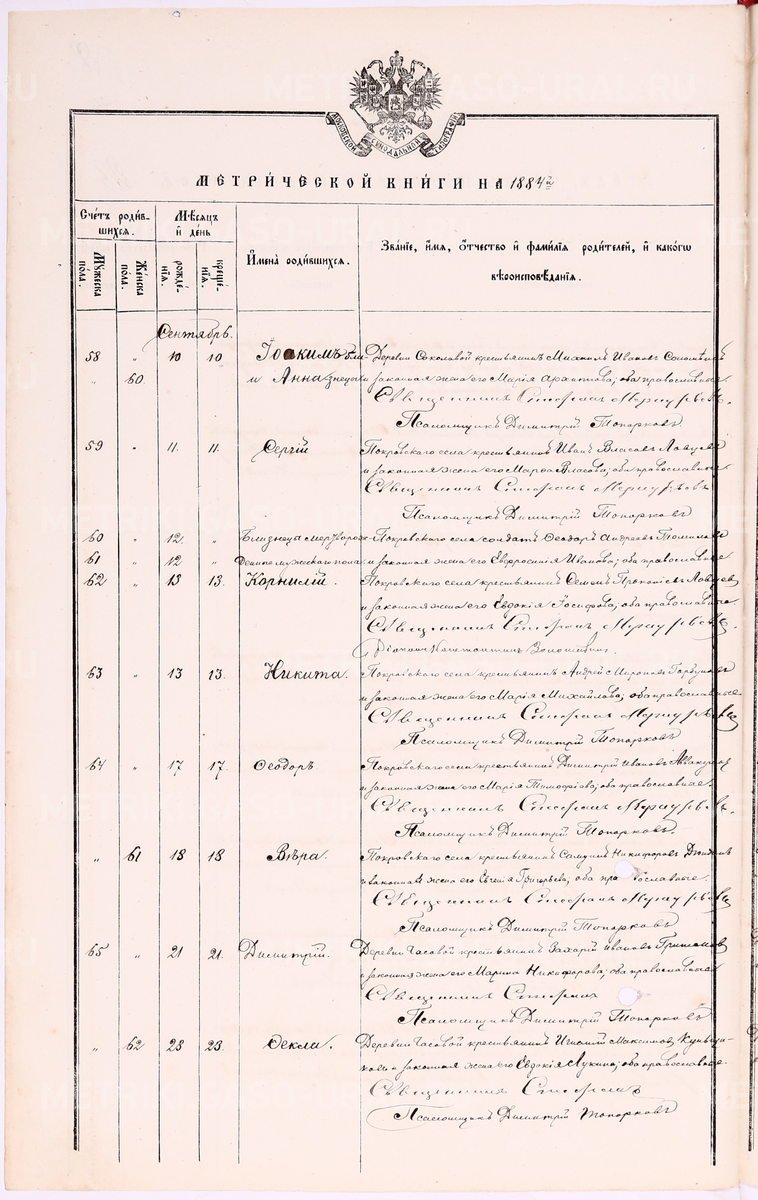 МОСКОВСКОЙ СѴНОДАЛЬНОЙ ТИПОГРАФІИ
МЕТРИЧЕСКОЙ КНИГИ НА 1884й
Счетъ родившихся.
Мѣсяцъ и день
Имена родившихся.
Званіе, имя, отчество и фамилія родителей, и какогѡ вѣроисповѣданія.
Мужеска пола.
Женска пола.
рожденія.
крещенія.
Сентябрь.
58 " 10 10 Іоакимъ бли- Деревни Соколовой крестьянинъ Михаилъ Ивановъ
" 60 и Анна знецы и законная жена его Марія Архипова; оба православные
Священникъ Стефанъ Меркурьевъ.
Псаломщикъ Димитрій Топорковъ.
59 " 11. 11. Сергій Покровскаго села крестьянинъ Иванъ Власовъ
и законная жена его Марѳа Власова; оба православные
Священникъ Стефанъ Меркурьевъ
Псаломщикъ Димитрій Топорковъ
60 " 12. " Близнеца мертворож- Покровскаго села солдатъ Ѳеодоръ Андреевъ
61 " 12 " денные мужескаго пола и законная жена его Евфросинія Иванова; оба православные
62 " 13 13. Корнилій. Покровскаго села крестьянинъ Семенъ Прокопіевъ
и законная жена его Евдокія Іосифова; оба православные.
Священникъ Стефанъ Меркурьевъ.
Діаконъ Константинъ
63 " 13 13. Никита. Покровскаго села крестьянинъ Андрей Мироновъ Горбуновъ
и законная жена его Марія Михайлова; оба православные.
Священникъ Стефанъ Меркурьевъ
Псаломщикъ Димитрій Топорковъ
64 " 17 17. Ѳеодоръ Покровскаго села крестьянинъ Димитрій Ивановъ
и законная жена его Марія Тимофіева; оба православные.
Священникъ Стефанъ Меркурьевъ.
Псаломщикъ Димитрій Топорковъ.
" 61 18 18 Вѣра. Покровскаго села крестьянинъ Самуилъ Никифоровъ
и законная жена его Евгенія Григорьева; оба православные.
Священникъ Стефанъ Меркурьевъ
Псаломщикъ Димитрій Топорковъ
65 " 21 21. Димитрій. Деревни Часовой крестьянинъ Захарій Ивановъ
и законная жена его Марина Никифорова; оба православные
Священникъ Стефанъ
Псаломщикъ Димитрій Топорковъ
" 62 23 23 Ѳекла. Деревни Часовой крестьянинъ Игнатій Максимовъ
и законная жена его Евдокія Лукина; оба православные.
Священникъ Стефанъ
Псаломщикъ Димитрій Топорковъ